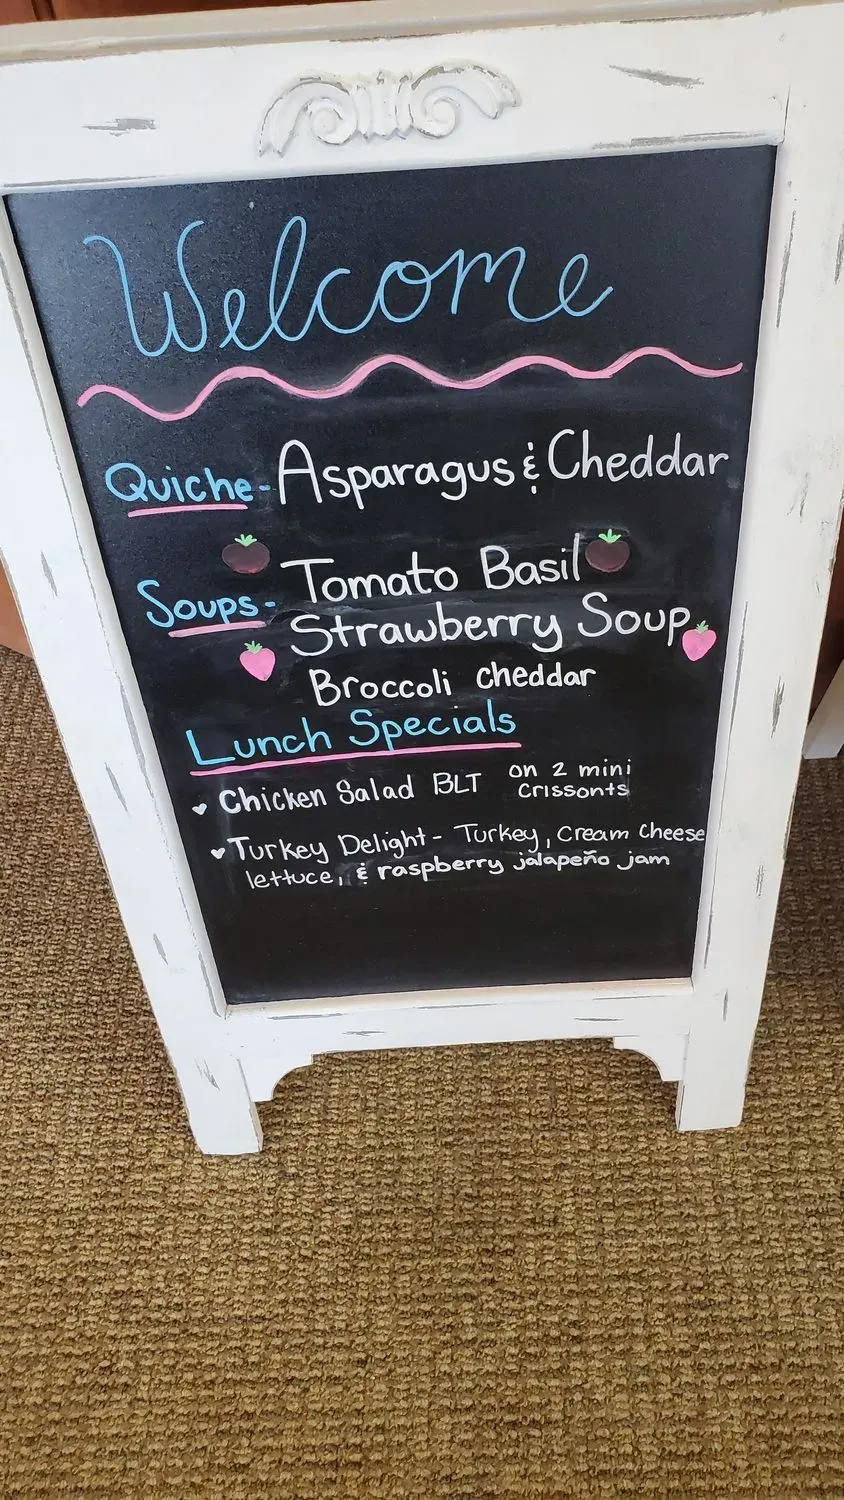 Welcome
Quiche - Asparagus & Cheddar
Soups - Tomato Basil
Strawberry Soup
Broccoli cheddar
Lunch Specials
Chicken Salad BLT on 2 mini
Crissonts
Turkey Delight - Turkey, Cream Cheese
lettuce, & raspberry jalapeño jam